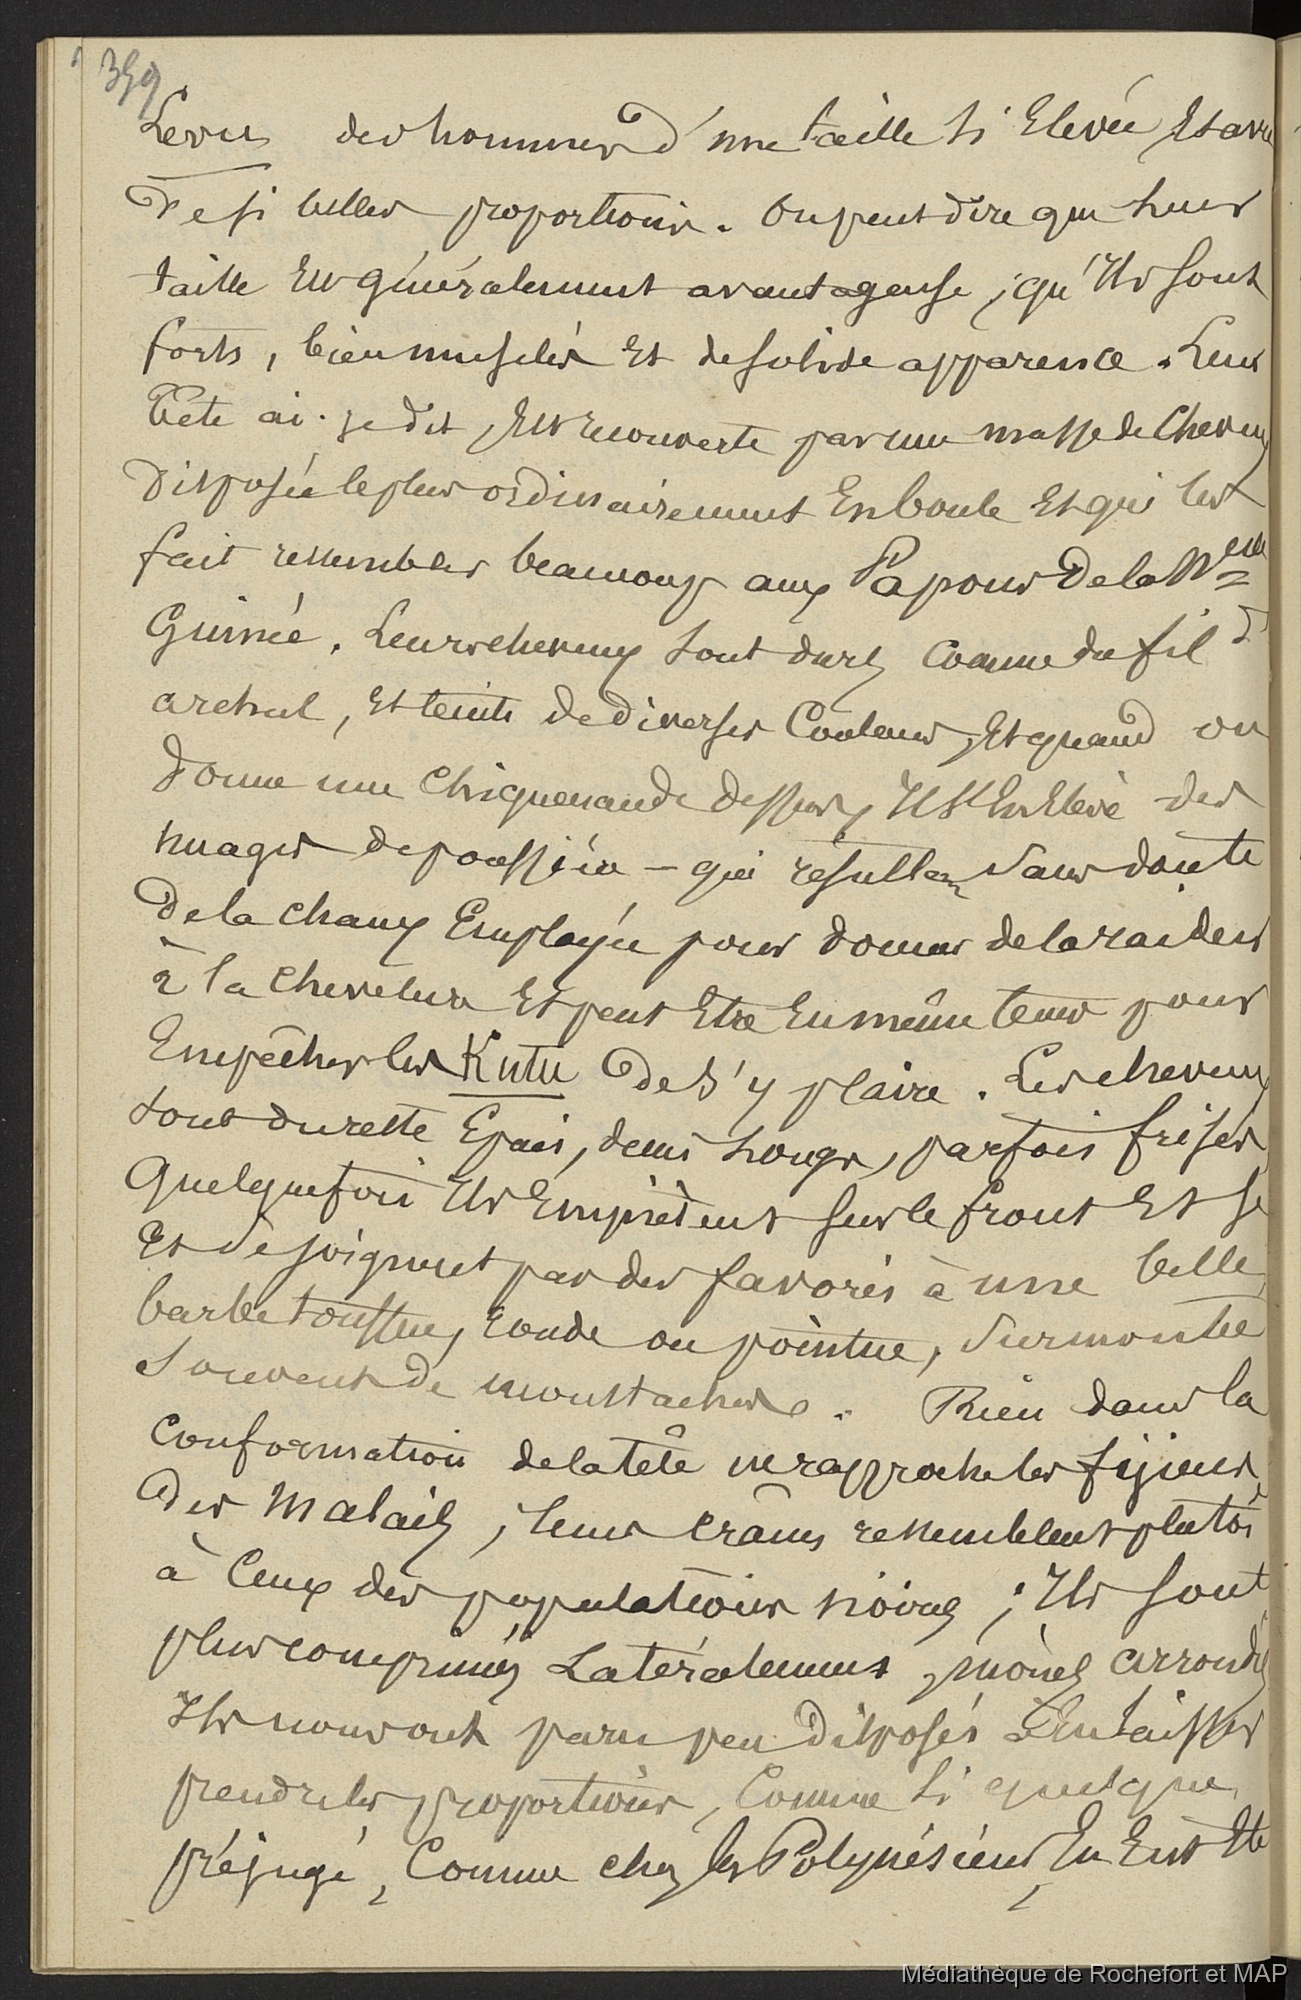 359
Levu des hommes d'une taille si Elevée Et avec
de si belles proportions. On peut dire que leur
taille Est généralement avantageuse, qu'Ils sont
forts, bien musclés Et de solide apparence. Leur
tête ai-je dit, Est recouverte par une masse de cheveux
disposée le plus ordinairement En boule Et qui les
fait ressembler beaucoup aux Papous de la Nelle
Guinée. Leurs cheveux sont durs comme du fil d'
archal, Et teints de diverses Couleurs, Et quand on
donne une chiquenaude dessus, Il s'En Elève des
nuages de poussière - qui résultent sans doute
de la chaux Employée pour donner de la raideur
à la chevelure Et peut Etre En même tems pour
Empêcher les Kutu de s'y plaire. Les cheveux
sont du reste Epais, demi longs, parfois frisés,
quelquefois Ils Empiètent sur le front Et se
Et se joignent par des favoris à une belle
barbe touffue, ronde ou pointue, surmontée
souvent de moustaches. Rien dans la
conformation de la tête ne rapproche les fijiens
des Malais, leurs crânes ressemblent plutôt
à Ceux des populations noires ; Ils sont
plus comprimés Latéralement, moins arrondis
Ils nous ont paru peu disposés à En laisser
prendre les proportions, Comme si quelque
préjugé, Comme chez les Polynésiens, En Eut Eté
Médiathèque de Rochefort et MAP